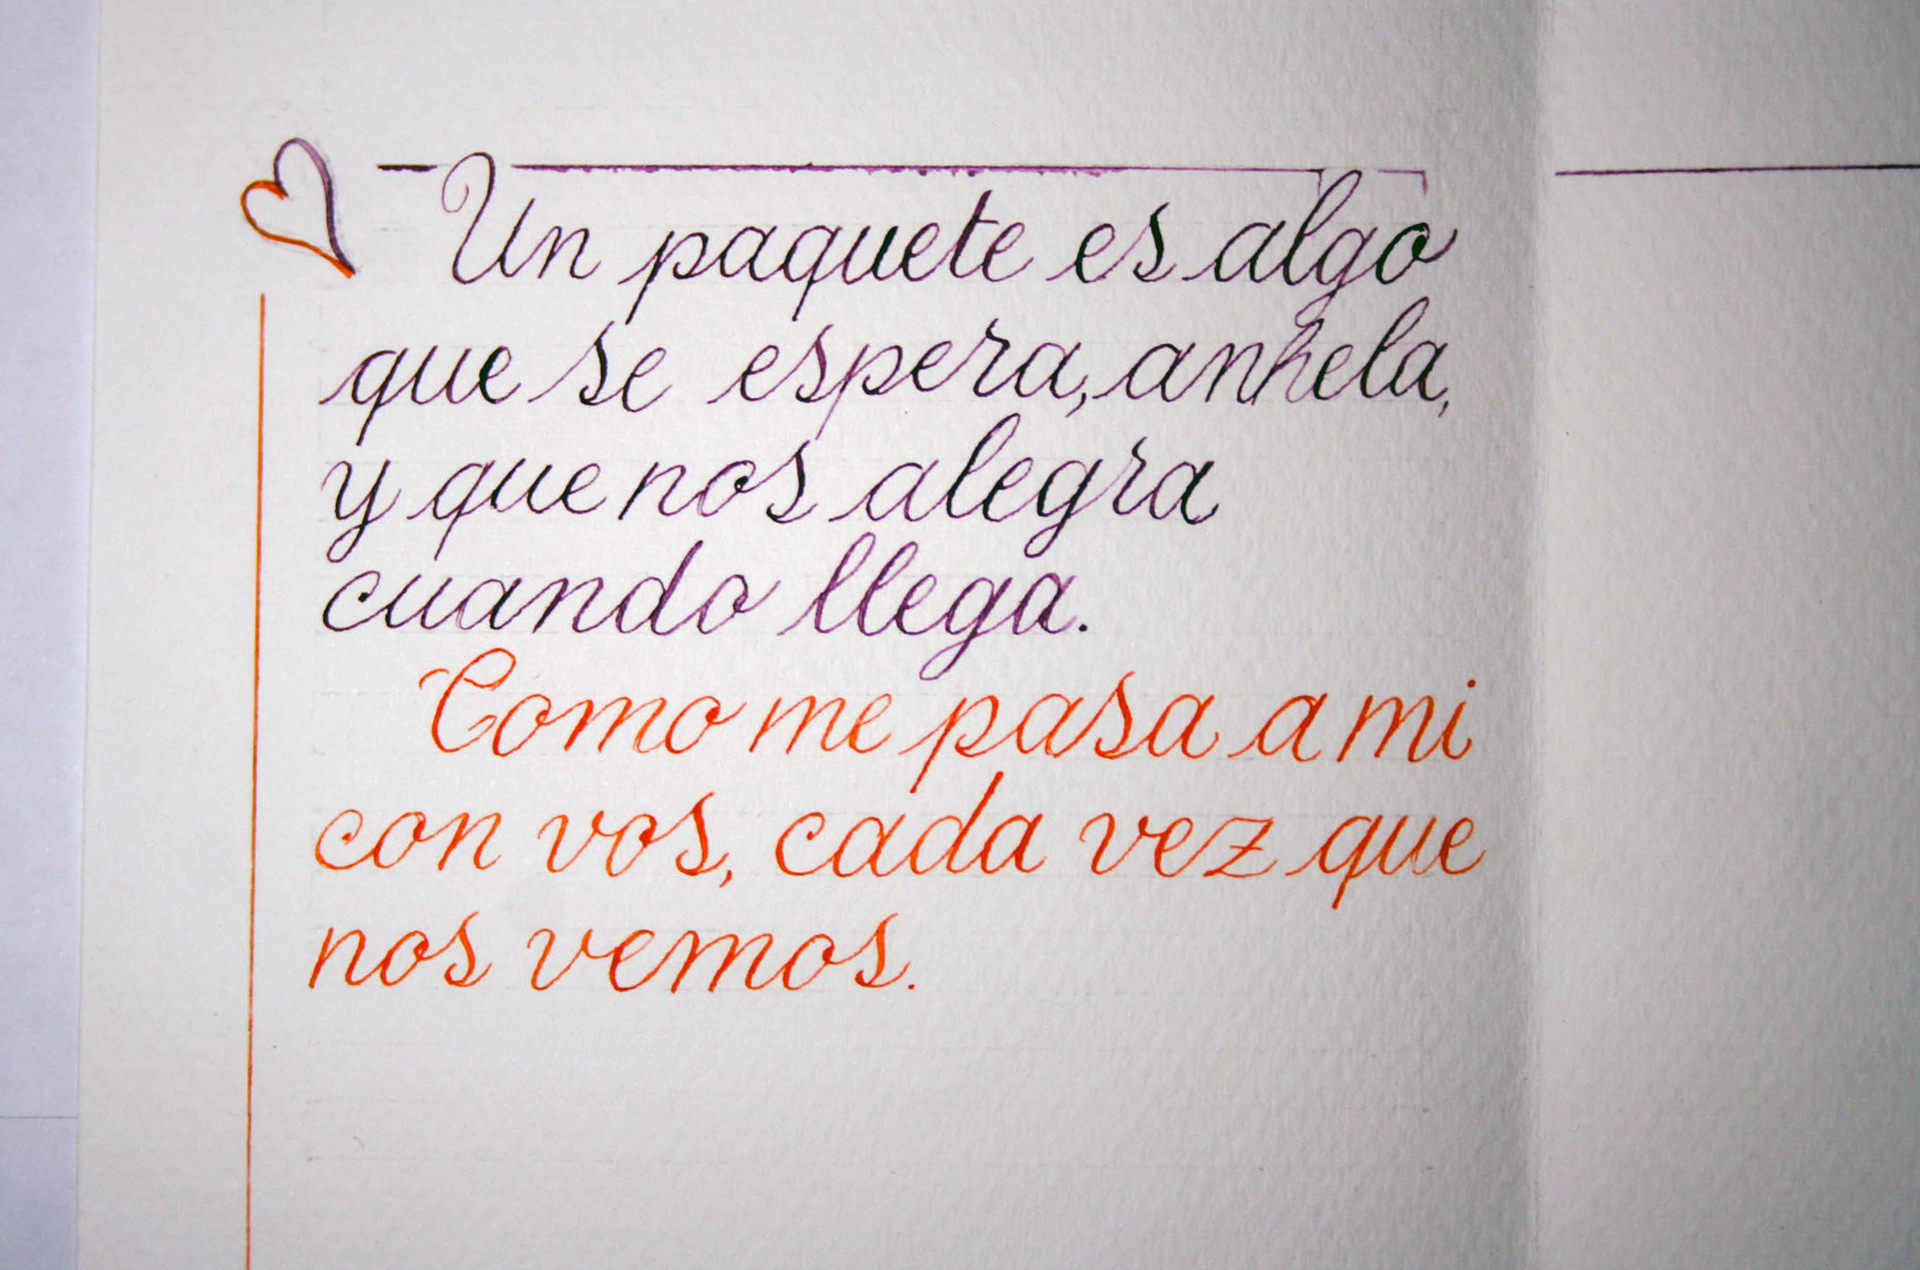 Un paquete es algo
que se espera, anhela,
y que nos alegra
cuando llega.
Como me pasa a mi
con vos, cada vez que
nos vemos.